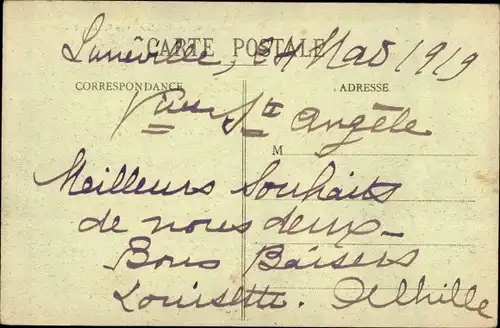 CARTE POSTALE
Lunéville, 24 Mai 1919
CORRESPONDANCE
ADRESSE
Vive Ste Angèle
M
Meilleurs Souhaits
de nous deux_
Bons Baisers
Louisette.